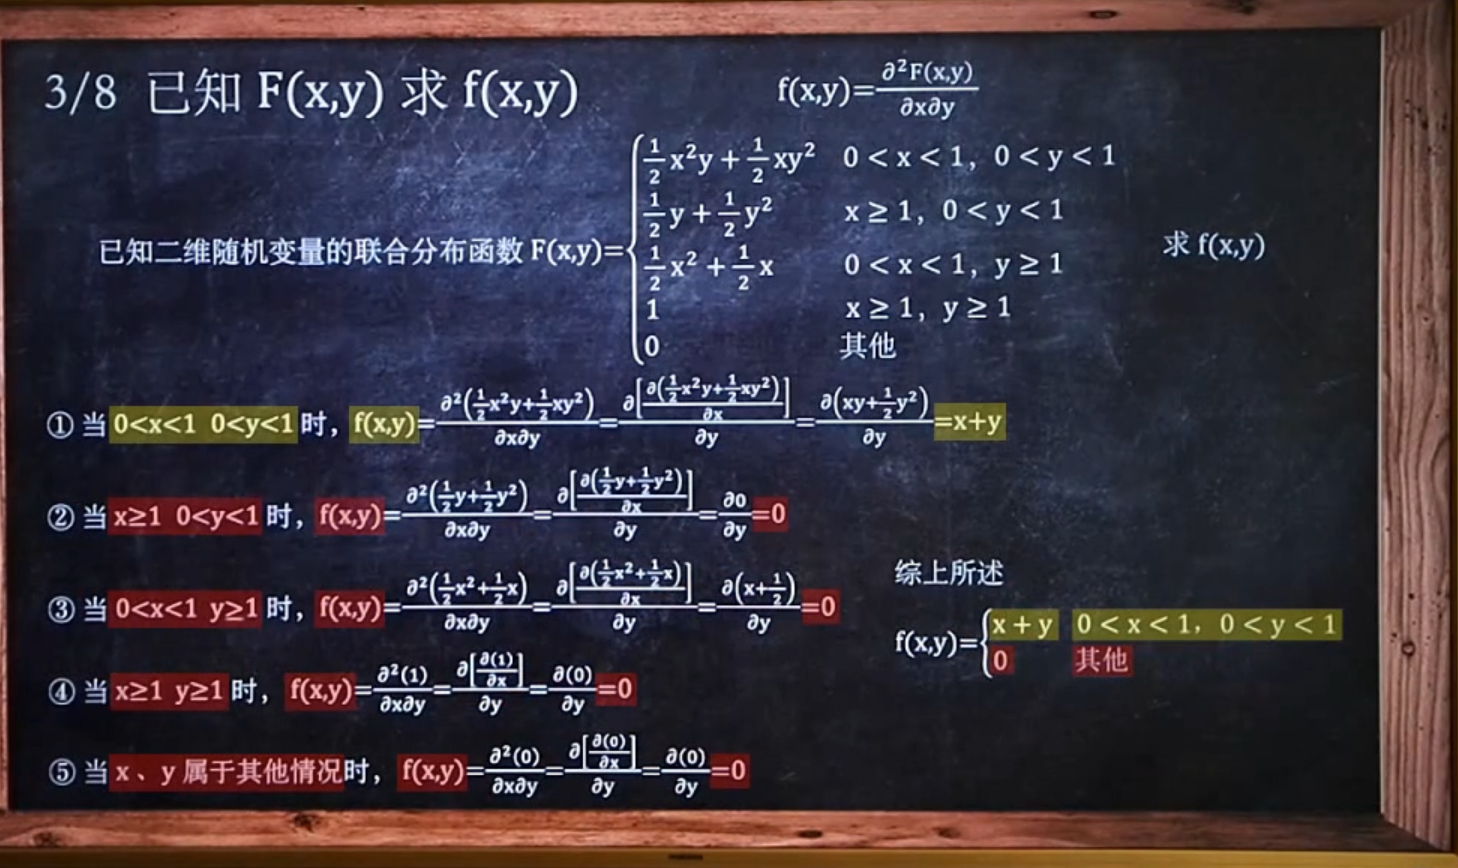 3/8 已知 F(x,y) 求 f(x,y)
f(x,y)=∂²F(x,y)/∂x∂y
已知二维随机变量的联合分布函数 F(x,y)={
1/2x²y+1/2xy² 0<x<1, 0<y<1
1/2y+1/2y² x≥1, 0<y<1
1/2x²+1/2x 0<x<1, y≥1
1 x≥1, y≥1
0 其他
求 f(x,y)
① 当 0<x<1 0<y<1 时, f(x,y)=∂²(1/2x²y+1/2xy²)/∂x∂y=∂[∂(1/2x²y+1/2xy²)/∂x]/∂y=∂(xy+1/2y²)/∂y=x+y
② 当 x≥1 0<y<1 时, f(x,y)=∂²(1/2y+1/2y²)/∂x∂y=∂[∂(1/2y+1/2y²)/∂x]/∂y=∂0/∂y=0
③ 当 0<x<1 y≥1 时, f(x,y)=∂²(1/2x²+1/2x)/∂x∂y=∂[∂(1/2x²+1/2x)/∂x]/∂y=∂(x+1/2)/∂y=0
④ 当 x≥1 y≥1 时, f(x,y)=∂²(1)/∂x∂y=∂[∂(1)/∂x]/∂y=∂(0)/∂y=0
⑤ 当 x、y 属于其他情况时, f(x,y)=∂²(0)/∂x∂y=∂[∂(0)/∂x]/∂y=∂(0)/∂y=0
综上所述
f(x,y)={
x+y 0<x<1, 0<y<1
0 其他